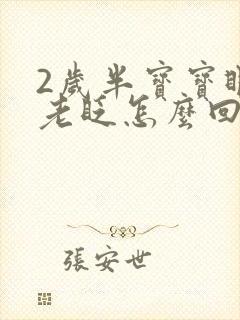 2歲半寶寶眼
老眨怎麼回
張安世